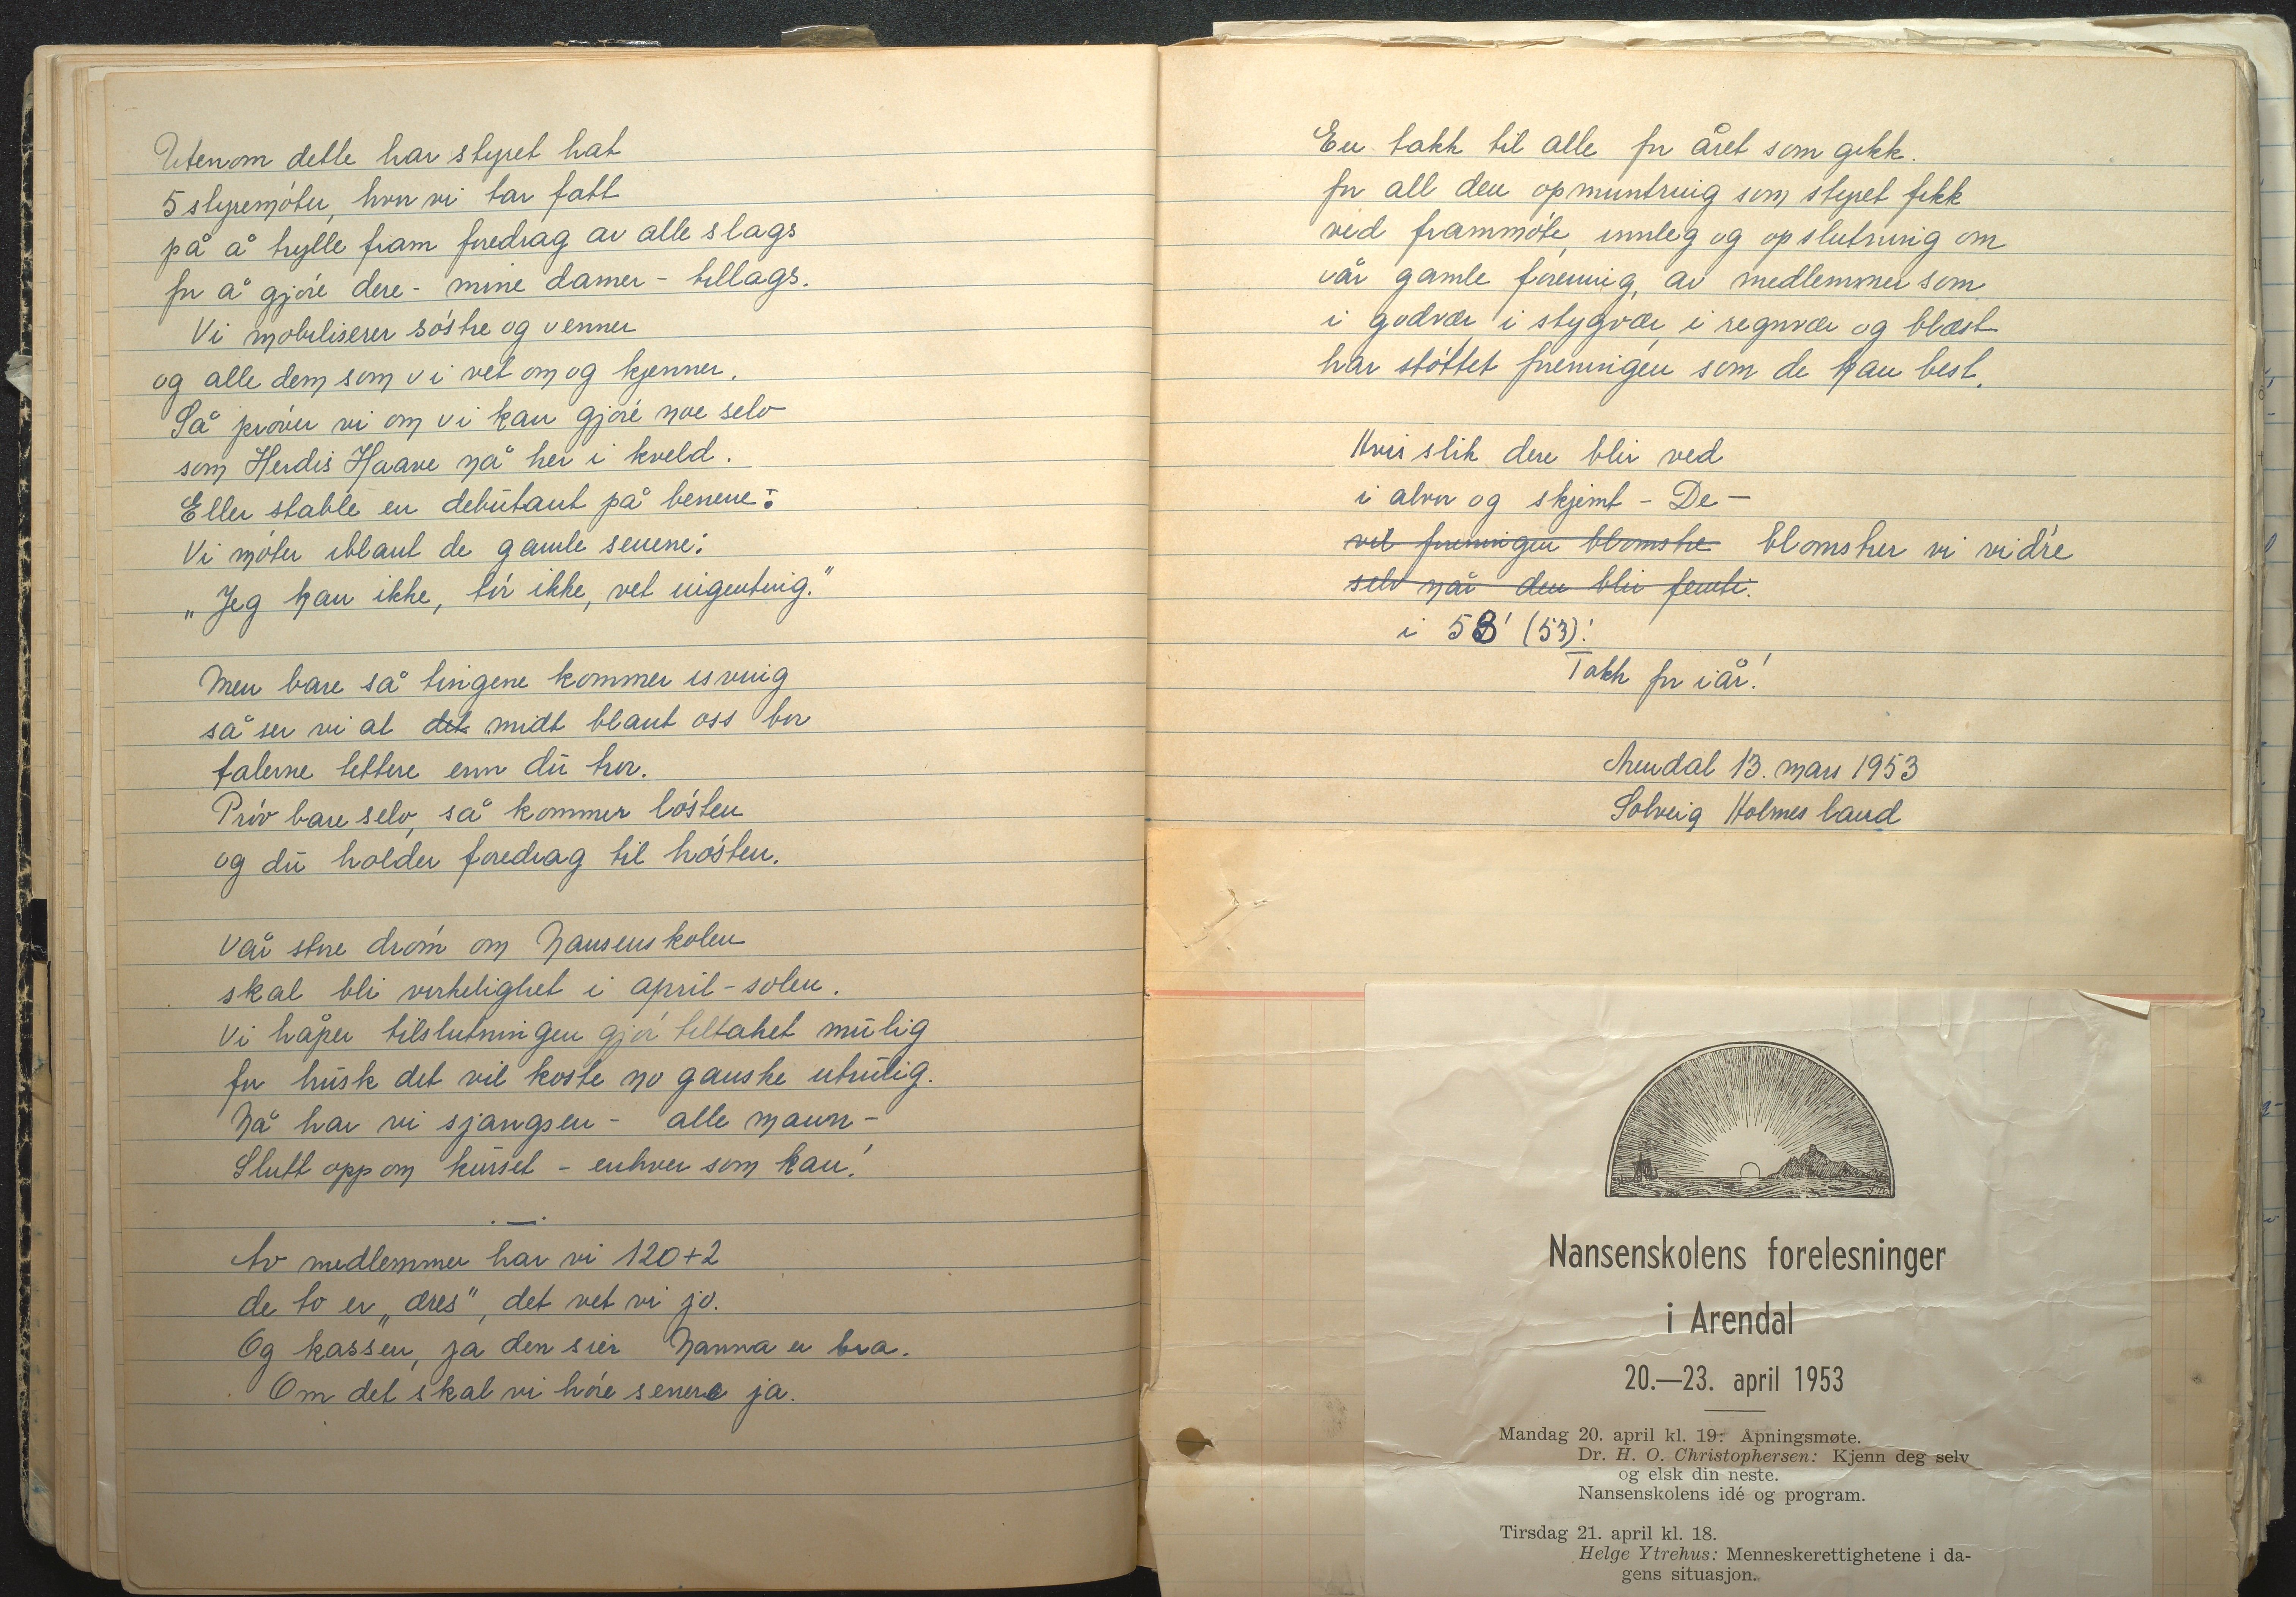 Utenom dette har styret hat
5 styremøter, hvor vi tar fatt
på å trylle fram foredrag av alle slags
for å gjøre dere - mine damer - tillags.
Vi mobiliserer søstre og venner
og alle dem som vi vet om og kjenner.
Så prøver vi om vi kan gjøre noe selv
som Herdis Haave nå her i kveld.
Eller stable en debutant på benene:
Vi møter iblant de gamle senene:
„Jeg kan ikke, tør ikke, vet ingenting."
Men bare så tingene kommer isving
så ser vi at det midt blant oss bor
talerne tettere enn du tror.
Prøv bare selv, så kommer løsten
og du holder foredrag til høsten.
Vår store drøm om Nansenskolen
skal bli virkelighet i april-solen.
Vi håper tilslutningen gjør tiltaket mulig
for husk det vil koste no ganske utrulig.
Nå har vi sjangsen - alle mann -
Slutt opp om kurset - enhver som kan!
. — .
Av medlemmer har vi 120+2
de to er „æres", det vet vi jo.
Og kassen, ja den sier Nanna er bra.
Om det skal vi høre senere ja.
En takk til alle for året som gikk.
for all den opmuntring som styret fikk
ved frammøte, innleg og opslutning om
vår gamle forening, av medlemmer som
i godvær i stygvær, i regnvær og blæst
har støttet foreningen som de kan best.
Hvis slik dere blir ved
i alvor og skjemt - De -
vil foreningen blomstre blomstrer vi vidre
selv når den blir femti.
i 53 (53)!
Takk for iår!
Arendal 13. mars 1953
Solveig Holmesland
Nansenskolens forelesninger
i Arendal
20.—23. april 1953
Mandag 20. april kl. 19: Åpningsmøte.
Dr. H. O. Christophersen: Kjenn deg selv
og elsk din neste.
Nansenskolens idé og program.
Tirsdag 21. april kl. 18.
Helge Ytrehus: Menneskerettighetene i da-
gens situasjon.